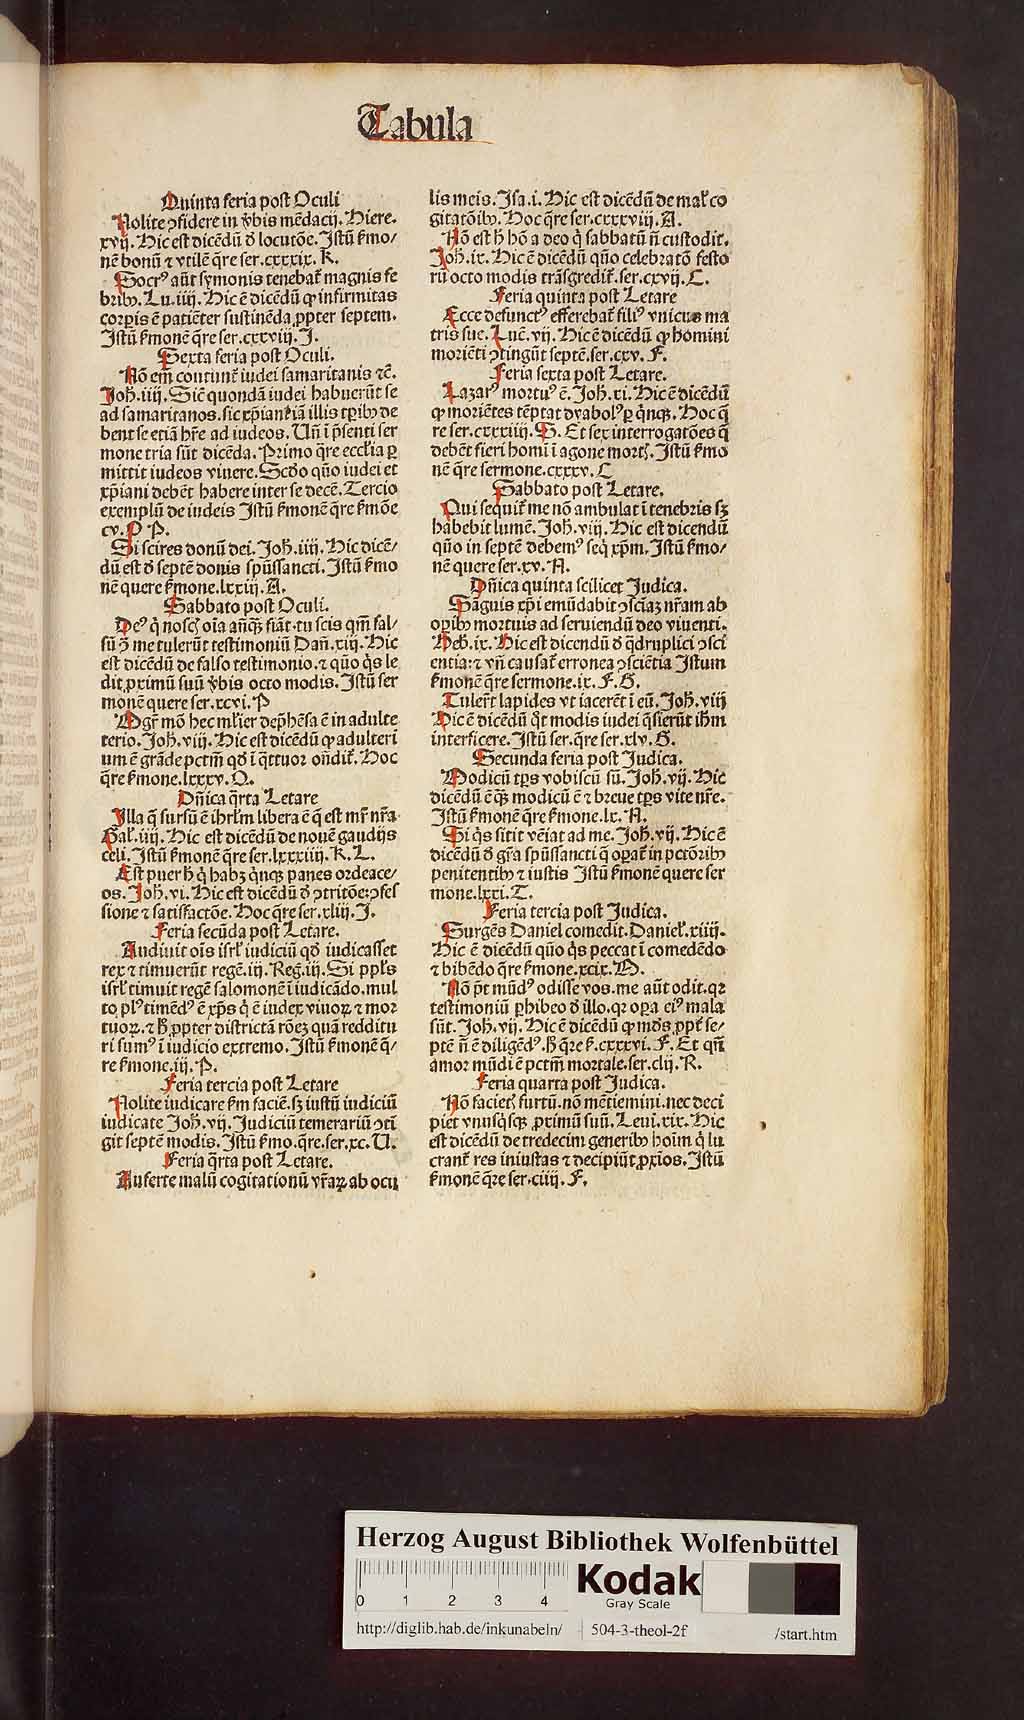 Tabula
Quinta feria post Oculi
Nolite ↄfidere in v̾bis mēdacij. Hiere.
xvij. Hic est dicēdū ð locutōe. Istū ẜmo/
nē bonū ⁊ vtilē q̄re ser.cxxxix. K.
Socrꝰ aūt symonis tenebat᷑ magnis fe
bribꝫ. Lu. iiij. Hic ē dicēdū ꝙ infirmitas
corꝑis ē patiēter sustinēda ꝓpter septem.
Istū ẜmonē q̄re ser.cxxviij. I.
Sexta feria post Oculi.
Nō em̄ coutunt᷑ iudei samaritanis ⁊c̄.
Joh̄. iiij. Sic̄ quondā iudei habuerūt se
ad samaritanos. sic xp̄iani etiā illis tꝑibꝫ de
bent se etiā hr̄e ad iudeos. Un̄ ī p̄senti ser
mone tria sūt dicēda. Primo q̄re eccl̄ia ꝑ
mittit iudeos viuere. Scd̄o quō iudei et
xp̄iani debēt habere inter se decē. Tercio
exemplū de iudeis Istū ẜmonē q̄re ẜmōe
cv. P P.
Si scires donū dei. Joh̄. iiij. Hic dicē/
dū est ð septē donis spūssancti. Istū ẜmo
nē quere ẜmone.lxxiij. A.
Sabbato post Oculi.
Deꝰ q̇ noscꝭ oīa an̄q̄ꝫ fiāt. tu scis qm̄ fal/
sū ↄ̄ me tulerūt testimoniū Dan̄. xiij. Hic
est dicēdū de falso testimonio. ⁊ quō q̇s le
dit ꝓximū suū v̾bis octo modis. Istū ser
monē quere ser.xcvi. P
Mgr̄ mō hec ml̄ier dep̄hēsa ē in adulte
terio. Joh̄. viij. Hic est dicēdū ꝙ adulteri
um ē grāde pctm̄ qð i q̄ttuor on̄dit᷑. Hoc
q̄re ẜmone.lxxxv. O.
Dn̄ica q̄rta Letare
Illa q̄ sursū ē ihrl̄m libera ē q̄ est mr̄ nr̄a
Gal᷑. iiij. Hic est dicēdū de nouē gaudijs
celi. Istū ẜmonē q̄re ser.lxxxiiij. K. L.
Est puer h̄ q̇ habꝫ q̇nqꝫ panes ordeace/
os. Joh̄. vi. Hic est dicēdū ð ↄtritōe: ↄfes
sione ⁊ satisfactōe. Hoc q̄re ser.xliij. I.
Feria secūda post Letare.
Audiuit oīs isrl̄ iudiciū qð iudicasset
rex ⁊ timuerūt regē. iij. Reg̃. iij. Si ppl̄s
isrl̄ timuit regē salomonē ī iudicādo. mul
to plꝰ timēdꝰ ē xp̄s q̇ ē iudex viuoꝝ ⁊ mor
tuoꝝ. ⁊ ꝓpter districtā rōeꝫ quā redditu
ri sumꝰ ī iudicio extremo. Istū ẜmonē q̄/
re ẜmone.iij. P.
Feria tercia post Letare
Nolite iudicare ẜm faciē. sꝫ iustū iudiciū
iudicate Joh̄. vij. Judiciū temerariū ↄtī
git septē modis. Istū ẜmo. q̄re. ser. xc. U.
Feria q̄rta post Letare.
Auferte malū cogitationū vr̄aꝝ ab ocu
lis meis. Isa. i. Hic est dicēdū de mal᷑ co
gitatōibꝫ. Hoc q̄re ser.cxxxviij. A.
Nō est h̄ hō a deo q̇ sabbatū n̄ custodit.
Joh̄. ix. Hic ē dicēdū quō celebratō festo
rū octo modis trāsgredit᷑. ser.cxvij. C.
Feria quinta post Letare
Ecce defunctꝰ efferebat᷑ filiꝰ vnicus ma
tris sue. Luc̄. vij. Hic ē dicēdū ꝙ homini
moriēti ↄtingūt septē. ser.cxv. F.
Feria sexta post Letare.
Lazarꝰ mortuꝰ ē. Joh̄. xi. Hic ē dicēdū
ꝙ moriētes tēptat dyabolꝰ ꝑ q̇nqꝫ. Hoc q̄
re ser.cxxxiiij. G. Et sex interrogatōes q̄
debēt fieri homī ī agone mortꝭ. Istū ẜmo
nē q̄re sermone.cxxxv. C
Sabbato post Letare.
Qui sequit᷑ me nō ambulat ī tenebris sꝫ
habebit lumē. Joh̄. viij. Hic est dicendū
quō in septē debemꝰ seq̇ xp̄m. Istū ẜmo/
nē quere ser.xv. A.
Dn̄ica quinta scilicet Judica.
Sāguis xp̄i emūdabit ↄsciāꝫ nr̄am ab
oꝑibꝫ mortuis ad seruiendū deo viuenti.
Heb̄. ix. Hic est dicendū ð q̄druplici ↄsci
entia: ⁊ vn̄ causat᷑ erronea ↄsciētia Istum
ẜmonē q̄re sermone.ix. F. G.
Tulerūt lapides vt iacerēt ī eū. Joh̄. viij
Hic ē dicēdū q̄t modis iudei q̄sierūt ihm̄
interficere. Istū ser. q̄re ser.xlv. G.
Secunda feria post Judica.
Modicū tp̄s vobiscū sū. Joh̄. vij. Hic
dicēdū ē q̄ꝫ modicū ē ⁊ breue tp̄s vite nr̄e.
Istū ẜmonē q̄re ẜmone.lx. A.
Si q̇s sitit vēiat ad me. Joh̄. vij. Hic ē
dicēdū ð gr̄a spūssancti q̄ oꝑat᷑ in pctōribꝫ
penitentibꝫ ⁊ iustis Istū ẜmonē quere ser
mone.lxxi. T.
Feria tercia post Judica.
Surgēs Daniel comedit. Daniel᷑. xiiij.
Hic ē dicēdū quō q̇s peccat ī comedēdo
⁊ bibēdo q̄re ẜmone.xcix. H.
Nō pōt mūdꝰ odisse vos. me aūt odit. qꝛ
testimoniū ꝑhibeo ð illo. qꝛ oꝑa eiꝰ mala
sūt. Joh̄. vij. Hic ē dicēdū ꝙ mūdꝰ ꝓpt᷑ se/
ptē n̄ ē diligēdꝰ. q̄re ẜ.cxxxvi. F. Et qn̄
amor mūdi ē pctm̄ mortale. ser.clij. K.
Feria quarta post Judica.
Nō facietꝭ furtū. nō mētiemini. nec deci
piet vnusq̇sqꝫ ꝓximū suū. Leui. xix. Hic
est dicēdū de tredecim generibꝫ hoīm q̇ lu
crant᷑ res iniustas ⁊ decipiūt ꝓxīos. Istū
ẜmonē q̄re ser.ciiij. F.
Herzog August Bibliothek Wolfenbüttel
0 1 2 3 4
Kodak
Gray Scale
http://diglib.hab.de/inkunabeln/ 504-3-theol-2f /start.htm